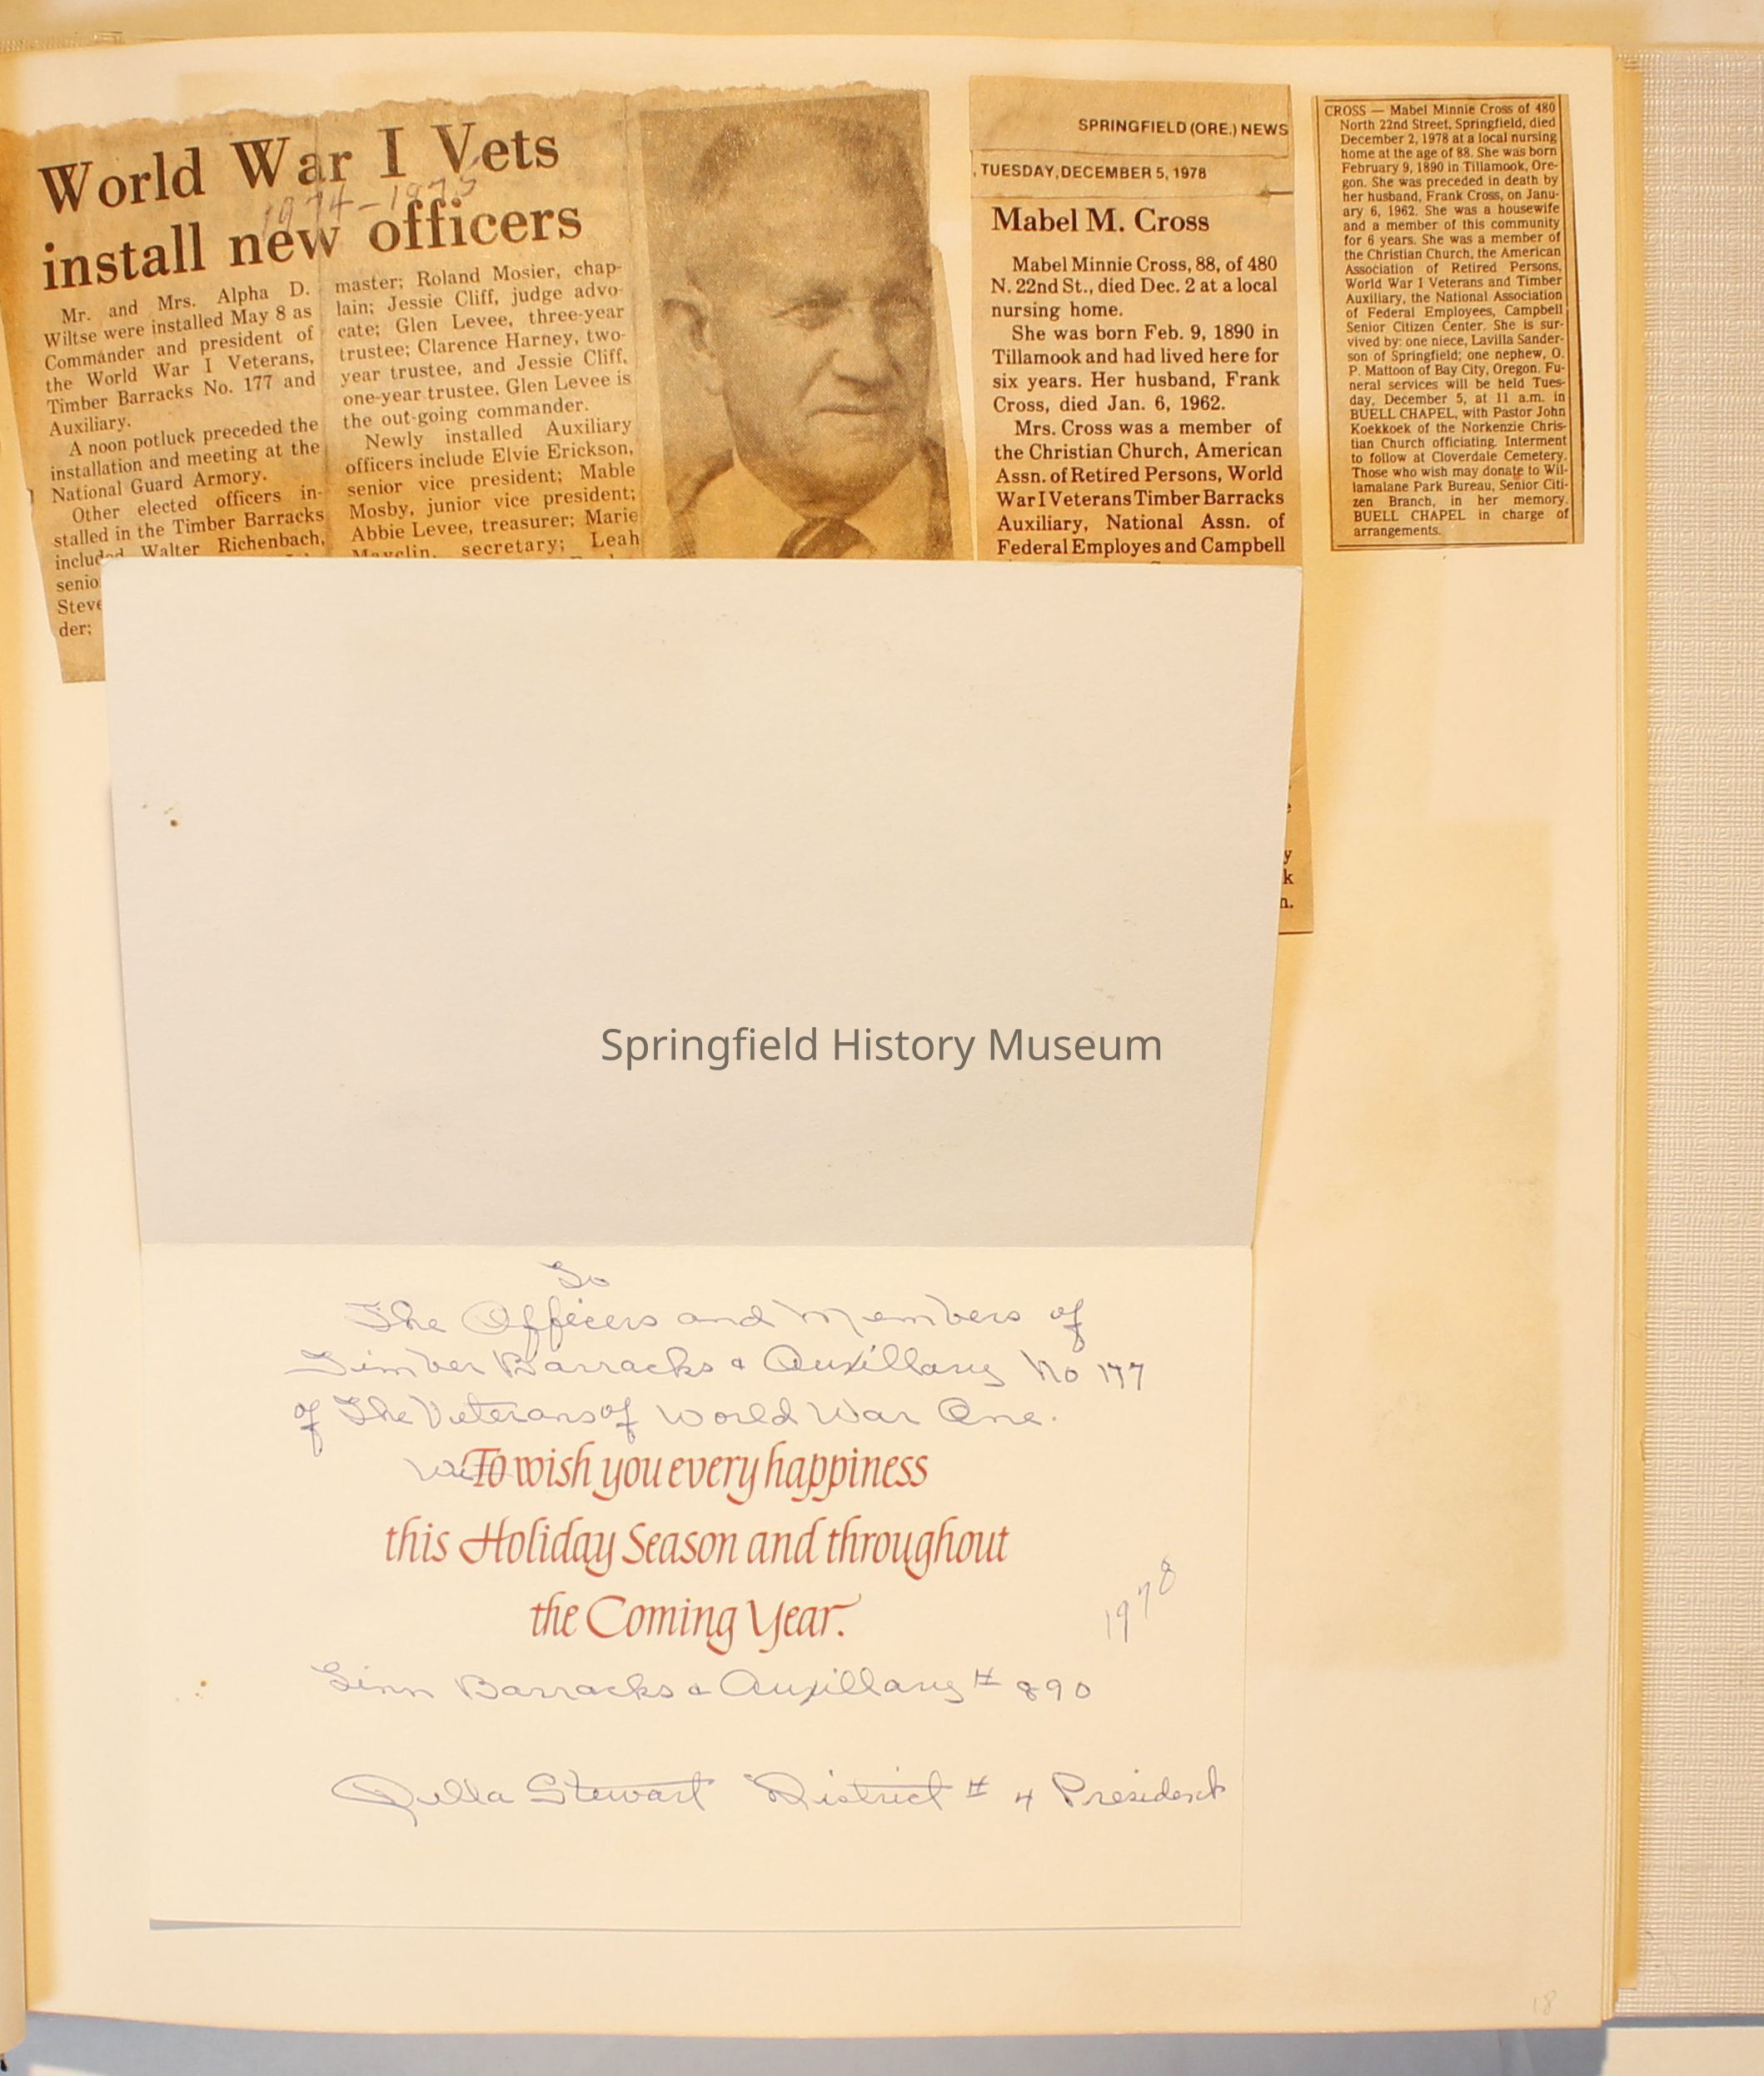 World War I Vets
1974-1975
install new officers
Mr. and Mrs. Alpha D.
Wiltse were installed May 8 as
Commander and president of
the World War I Veterans,
Timber Barracks No. 177 and
Auxiliary.
A noon potluck preceded the
installation and meeting at the
National Guard Armory.
Other elected officers in-
stalled in the Timber Barracks
included Walter Richenbach,
senio
Steve
der;
master; Roland Mosier, chap-
lain; Jessie Cliff, judge advo-
cate; Glen Levee, three-year
trustee; Clarence Harney, two-
year trustee, and Jessie Cliff,
one-year trustee. Glen Levee is
the out-going commander.
Newly installed Auxiliary
officers include Elvie Erickson,
senior vice president; Mable
Mosby, junior vice president;
Abbie Levee, treasurer; Marie
secretary; Leah
SPRINGFIELD (ORE.) NEWS
TUESDAY, DECEMBER 5, 1978
Mabel M. Cross
Mabel Minnie Cross, 88, of 480
N. 22nd St., died Dec. 2 at a local
nursing home.
She was born Feb. 9, 1890 in
Tillamook and had lived here for
six years. Her husband, Frank
Cross, died Jan. 6, 1962.
Mrs. Cross was a member of
the Christian Church, American
Assn. of Retired Persons, World
War I Veterans Timber Barracks
Auxiliary, National Assn. of
Federal Employes and Campbell
y
k
n.
CROSS — Mabel Minnie Cross of 480
North 22nd Street, Springfield, died
December 2, 1978 at a local nursing
home at the age of 88. She was born
February 9, 1890 in Tillamook, Ore-
gon. She was preceded in death by
her husband, Frank Cross, on Janu-
ary 6, 1962. She was a housewife
and a member of this community
for 6 years. She was a member of
the Christian Church, the American
Association of Retired Persons,
World War I Veterans and Timber
Auxiliary, the National Association
of Federal Employees, Campbell
Senior Citizen Center. She is sur-
vived by: one niece, Lavilla Sander-
son of Springfield; one nephew, O.
P. Mattoon of Bay City, Oregon. Fu-
neral services will be held Tues-
day, December 5, at 11 a.m. in
BUELL CHAPEL, with Pastor John
Koekkoek of the Norkenzie Chris-
tian Church officiating. Interment
to follow at Cloverdale Cemetery.
Those who wish may donate to Wil-
lamalane Park Bureau, Senior Citi-
zen Branch, in her memory.
BUELL CHAPEL in charge of
arrangements.
Springfield History Museum
To
The Officers and Members of
Timber Barracks & Auxillary No 177
of The Veterans of World War One.
To wish you every happiness
this Holiday Season and throughout
the Coming Year.
1978
Linn Barracks & Auxillary # 890
Stewart District # 4 President
18